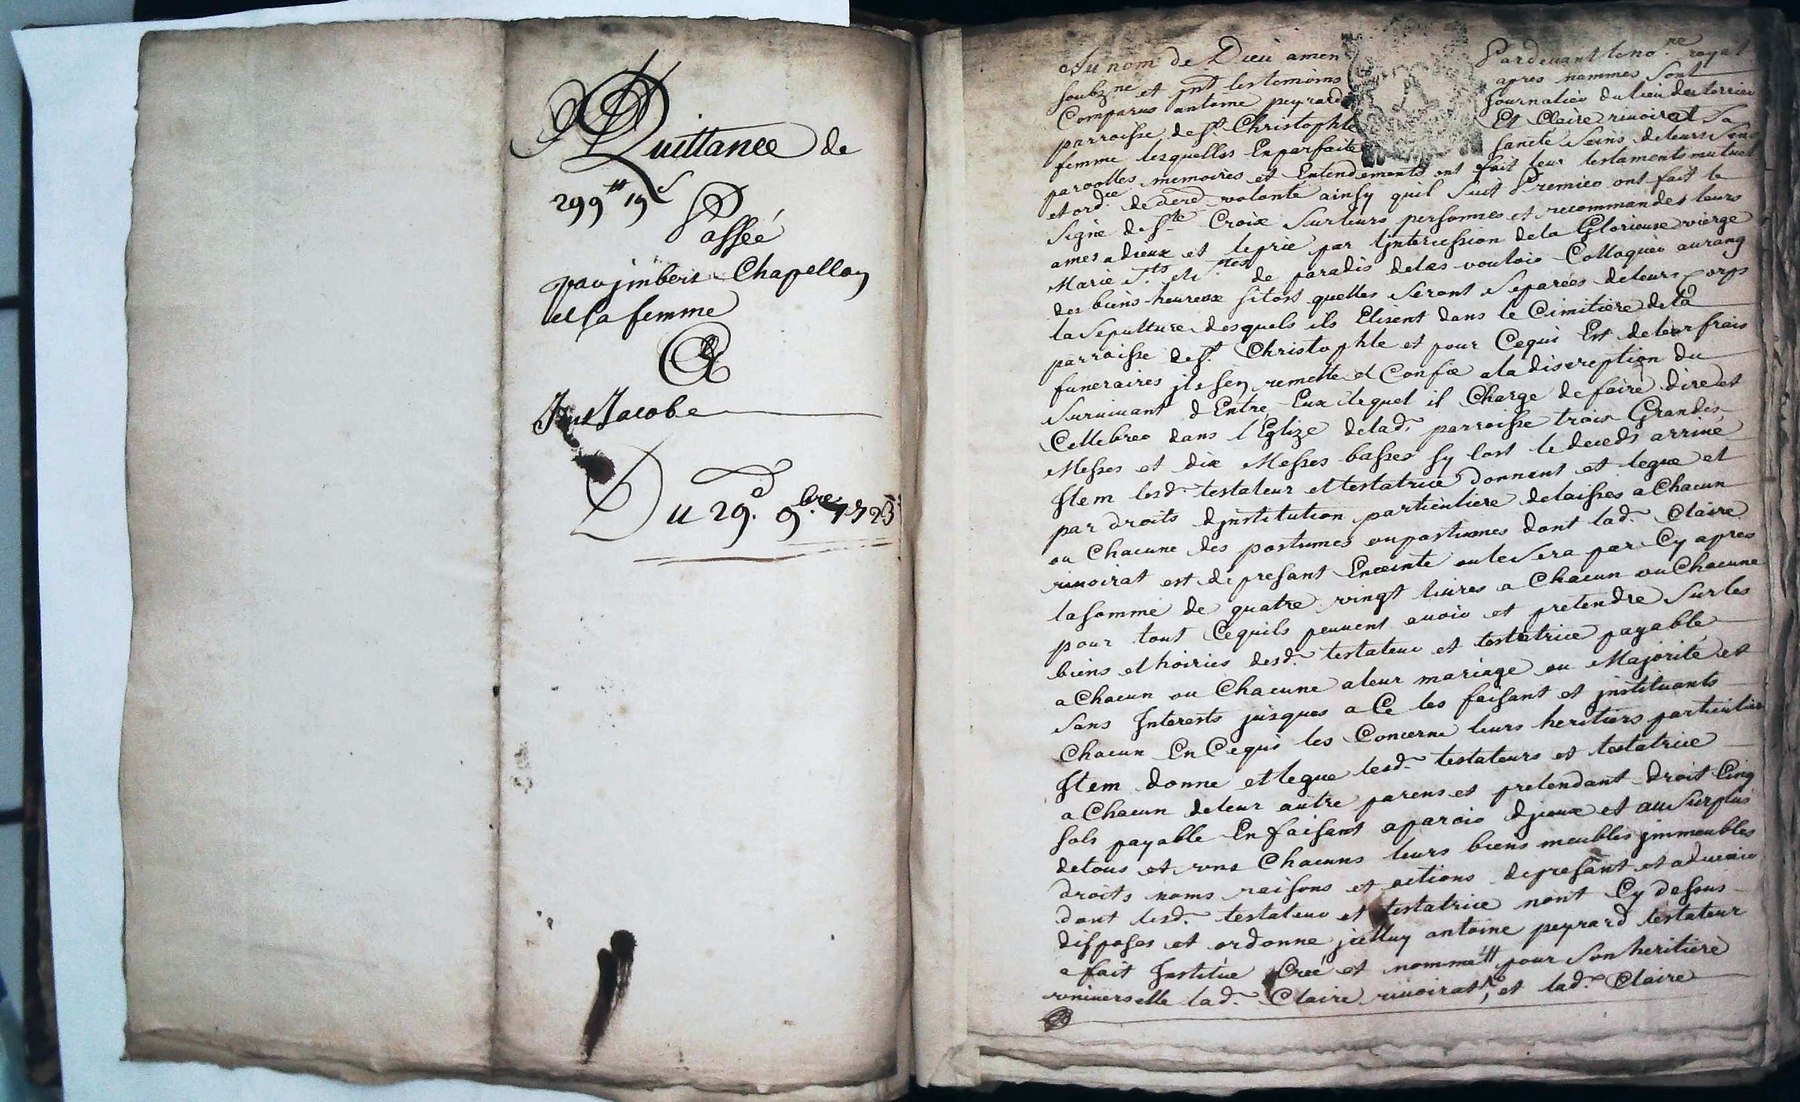 Quittance de
299ʰ 19ˢ
Passée
par jmbert Chapellon
et sa femme
A
Jacobe
Du 29.ᵉ 9.ᵇʳᵉ 1723
Au nom de Dieu amen Pardevant le no.ʳᵉ royal
soubz.ⁿᵉ et pnᵗ les temoins apres nommes sont
Comparus antoine peyrard journalier du lieu du terrier
parroisse de sᵗ Christophle Et Claire rivoirat sa
femme lesquelles En parfaite sancté seins de leurs sens
parolles memoires et Entendements ont fait leur testaments mutuel
et ord.ʳᵉ de derᵉ volonté ainsy quil suit Premier ont fait le
signe de Sᵗᵉ Croix sur leurs personnes et recommandes leurs
ames a dieux et le prie par lintercession de la Glorieuse vierge
Marie Sᵗˢ et Sᵗᵉˢ de paradis de les vouloir Colloquer au rang
des biens heureux sitost quelles seront separées de leurs Corps
la sepulture desquels ils Elisent dans le Cimitiere de la
parroisse de sᵗ Christophle et pour Cequi Est de leur frais
funeraires jls sen remette et Confie a la discreption du
survivant dEntre Eux lequel il Charge de faire dire et
Cellebrer dans lEglize de lad. parroisse trois Grandes
Messes et dix Messes basses sy tost le deceds arrive
Jtem lesd. testateur et testatrice donnent et legue et
par droits djnstitution particuliere delaisses a Chacun
ou Chacune des postumes ou postumes dont lad. Claire
rivoirat est de presant Enceinte ou le sera par Cy apres
la somme de quatre vingt livres a Chacun ou Chacune
pour tout Cequils peuvent avoir et pretendre sur les
biens et hoiries desd. testateur et testatrice payable
a Chacun ou Chacune a leur mariage ou Majorité et
sans Interests jusques a Ce les faisant et jnstituants
Chacun En Cequi les Concerne leurs heritiers particulier
Jtem donne et legue lesd. testateurs et testatrice
a Chacun de leur autre parens et pretendant droit Cinq
sols payable En faisant aparoir djceux et au surplus
de tous et vns Chacuns leurs biens meubles jmmeubles
droits noms raisons et actions de presant et advenir
dont lesd. testateur et testatrice nont Cy dessus
disposes et ordonne jcelluy antoine peyrard testateur
a fait Jnstitue Creé et nomme pour son heritiere
vniverselle lad. Claire rivoirat, et lad. Claire